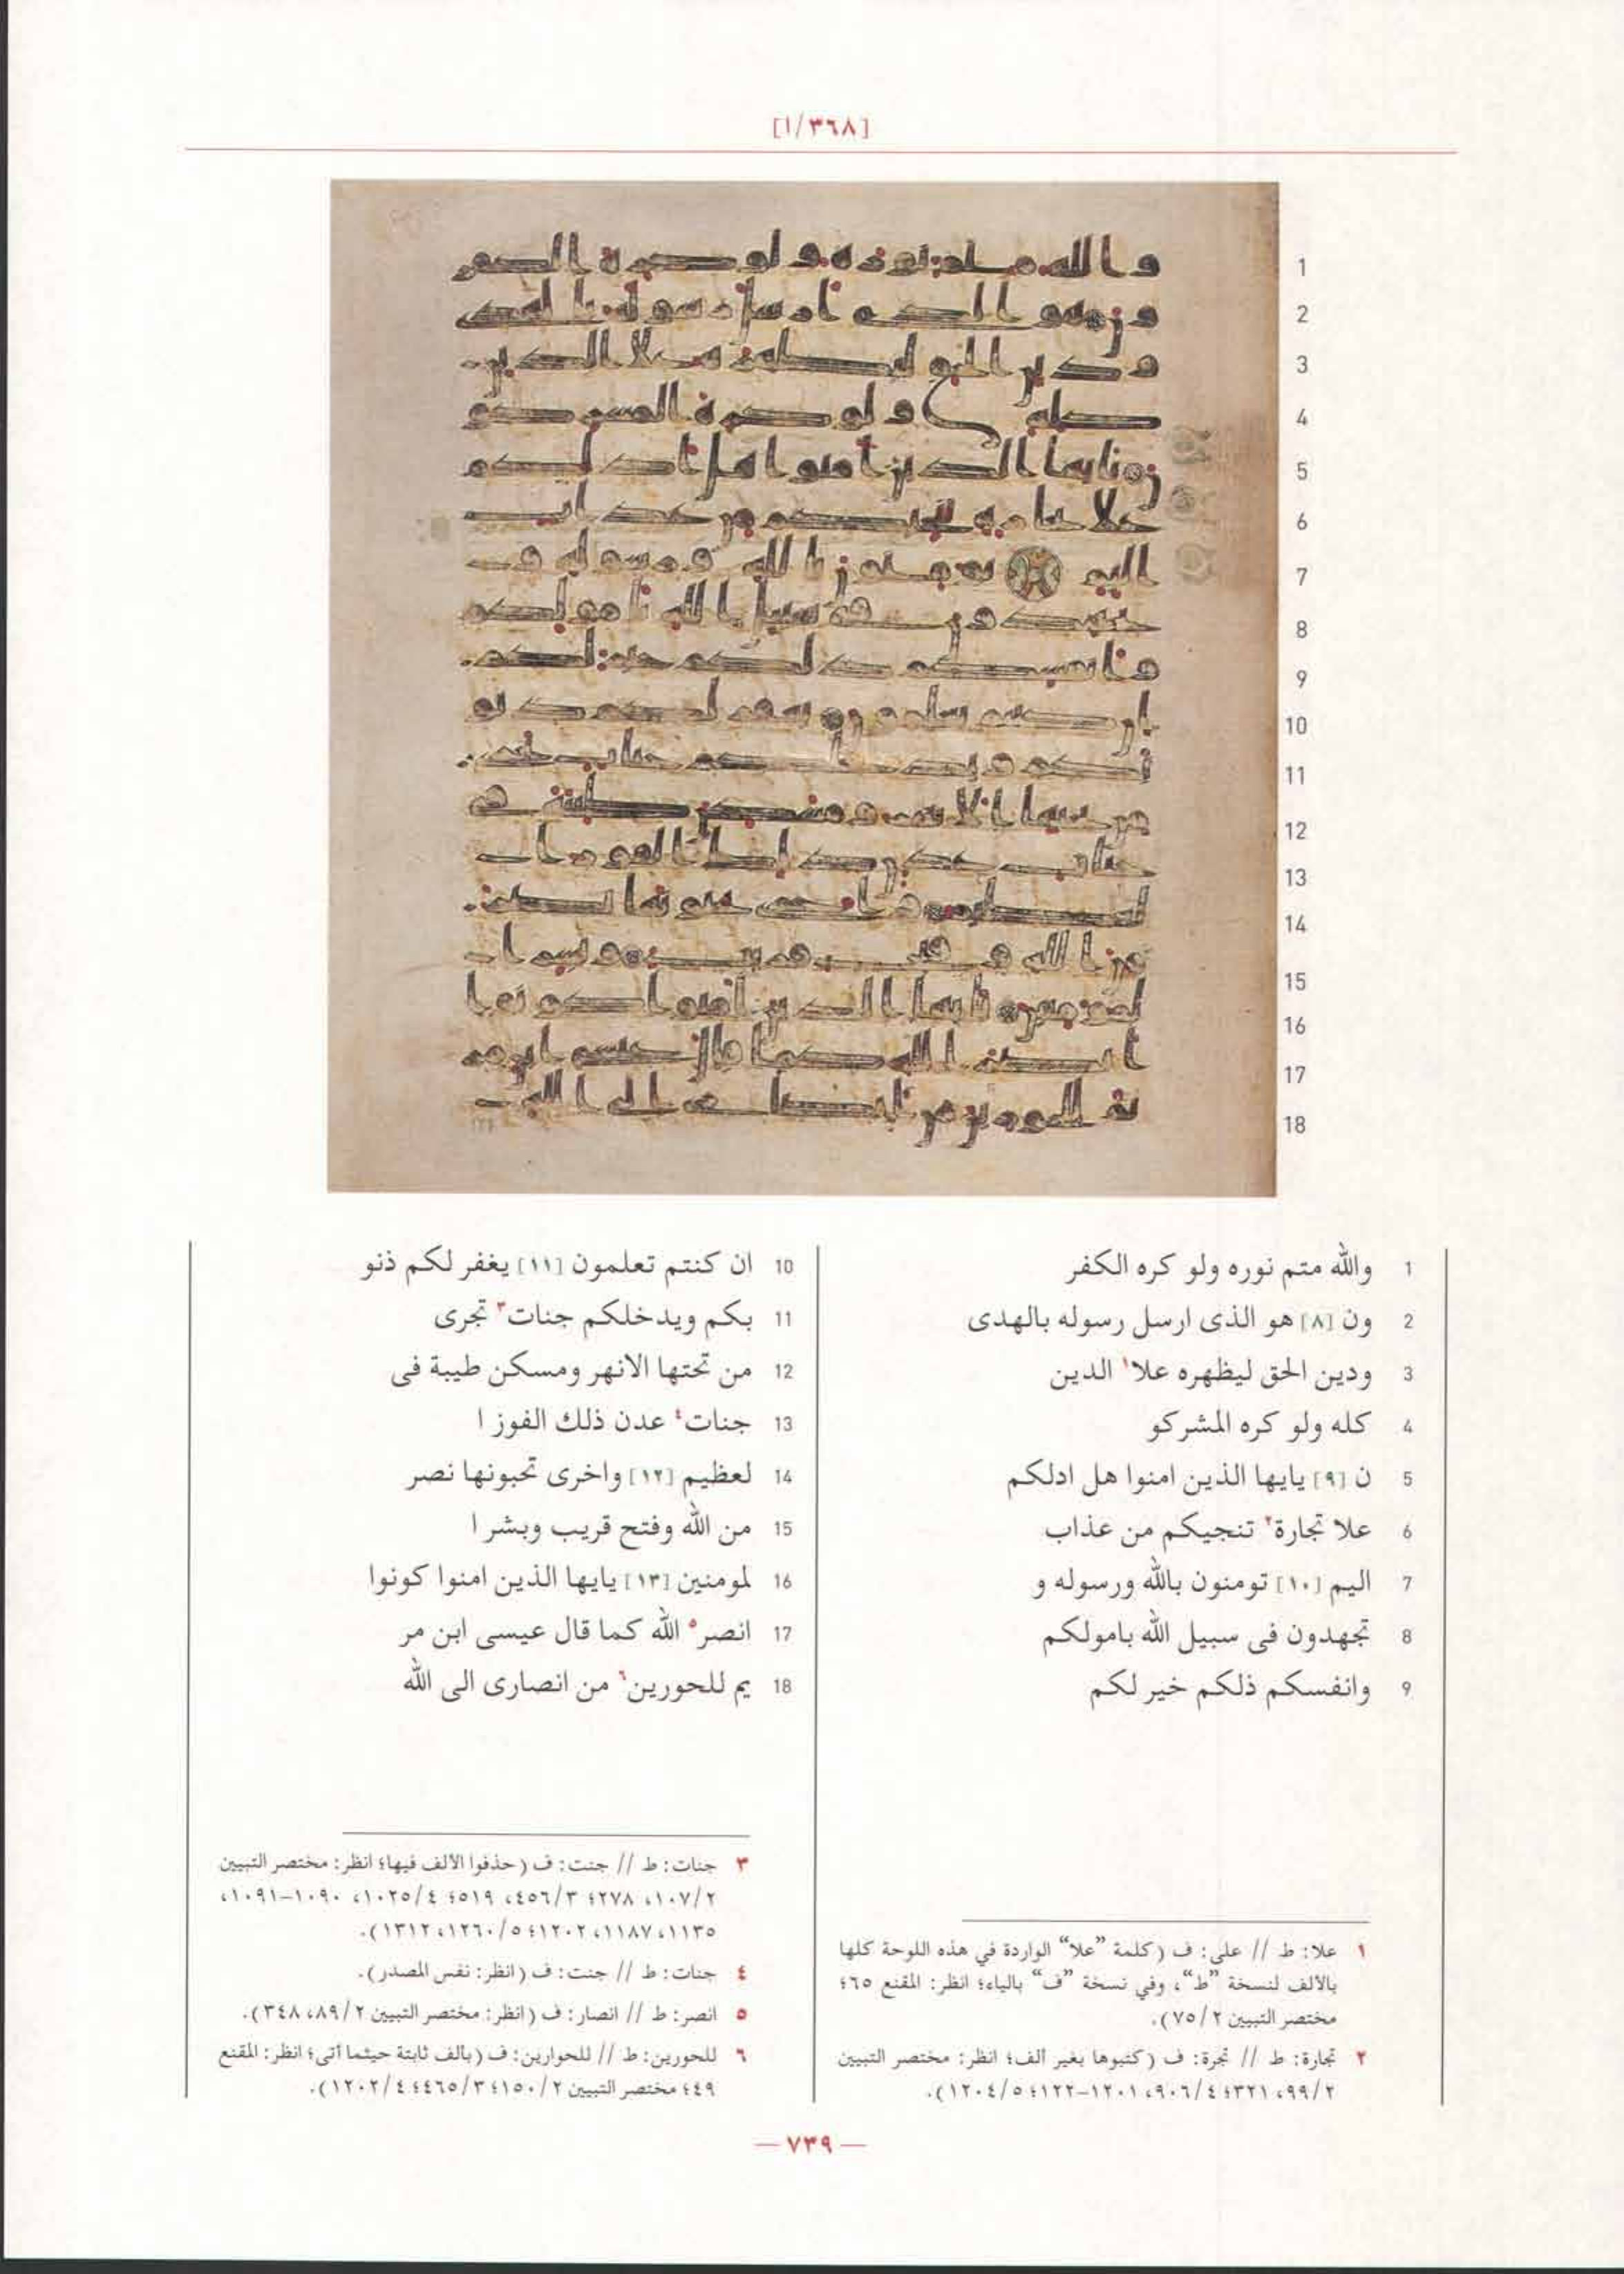 [١/٣٦٨]
1 والله متم نوره ولو كره الكفر
2 ون [٨] هو الذى ارسل رسوله بالهدى
3 ودين الحق ليظهره علا١ الدين
4 كله ولو كره المشركو
5 ن [٩] يايها الذين امنوا هل ادلكم
6 علا تجارة٢ تنجيكم من عذاب
7 اليم [١٠] تومنون بالله ورسوله و
8 تجهدون فى سبيل الله بامولكم
9 وانفسكم ذلكم خير لكم
10 ان كنتم تعلمون [١١] يغفر لكم ذنو
11 بكم ويدخلكم جنات٣ تجرى
12 من تحتها الانهر ومسكن طيبة فى
13 جنات٤ عدن ذلك الفوز ا
14 لعظيم [١٢] واخرى تحبونها نصر
15 من الله وفتح قريب وبشر ا
16 لمومنين [١٣] يايها الذين امنوا كونوا
17 انصر٥ الله كما قال عيسى ابن مر
18 يم للحورين٦ من انصارى الى الله
١ علا: ط // على: ف (كلمة "علا" الواردة في هذه اللوحة كلها
بالألف لنسخة "ط"، وفي نسخة "ف" بالياء؛ انظر: المقنع ٦٥؛
مختصر التبيين ٧٥/٢).
٢ تجارة: ط // تجرة: ف (كتبوها بغير ألف؛ انظر: مختصر التبيين
٩٩/٢، ٣٢١؛ ٩٠٦/٤، ١٢٠١-١٢٢؛ ١٢٠٤/٥).
٣ جنات: ط // جنت: ف (حذفوا الألف فيها؛ انظر: مختصر التبيين
١٠٧/٢، ٢٧٨؛ ٤٥٦/٣، ٥١٩؛ ١٠٢٥/٤، ١٠٩٠-١٠٩١،
١١٣٥، ١١٨٧، ١٢٠٢؛ ١٢٦٠/٥، ١٣١٢).
٤ جنات: ط // جنت: ف (انظر: نفس المصدر).
٥ انصر: ط // انصار: ف (انظر: مختصر التبيين ٨٩/٢، ٣٤٨).
٦ للحورين: ط // للحوارين: ف (بالف ثابتة حيثما أتى؛ انظر: المقنع
٤٩؛ مختصر التبيين ١٥٠/٢؛ ٤٦٥/٣؛ ١٢٠٢/٤).
— ٧٣٩ —